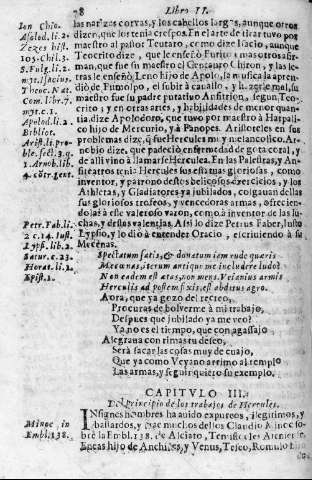 78 Libro II.
las narizes corvas, y los cabellos largos, aunque otros
dizen, que los tenia crespos. En el arte de tirar tuvo por
maestro al pastor Teutaro, como dize Isacio, aunque
Teocrito dize, que le enseño Eurito: mas otros afirman,
que fue su maestro el Centauro Chiron, y las letras
le enseñò Leno hijo de Apolo, la musica la aprendiò
de Eumolpo, el subir à cavallo, y
maestro fue su padre putativo Anfitrion, segun Teocrito,
y en otras artes, y habilidades de menor quantia,
dize Apolodoro, que tuvo por maestro à Harpalico
hijo de Mercurio, y à Panopes. Aristoteles en sus
problemas dize, que Hercules mui melancolico, Arnobio
dize, que padeciò enfermedad de gota coral, y
de alli vino à llamarse Herculea. En las Palestras, y Anfiteatros
tenia Hercules sus estatuas gloriosas, como
inventor, y patrono destos belicosos exercicios, y los
Athletas, y Gladiatores ya jubilados, colgavan dellas
sus gloriosos trofeos, y vencedoras armas, ofreciendolas
à este valeroso varon, como à inventor de las luchas,
y destas valentias. Assi lo dize Petrus Faber, Iusto
Lypsio, y lo diò à entender Oracio, escriviendo à su
Mecenas.
Spectatum satis, & donatum iam rude quæris
Mecænas, iterum antiquo me includere ludo?
Non eadem est ætas, non mens. Veianius armis
Herculis ad postem fixis, est abditus agro.
Aora, que ya gozo del recreo,
Procuras de bolverme à mi trabajo,
Despues que jubilado ya me veo?
Ya no es el tiempo, que con agassajo
Alegrava con rimas tu deseo,
Serà sacar las cosas muy de cuajo,
Que ya como Veyano arrimo al templo
Las armas, y seguir quiero su exemplo.
CAPITVLO III.
Del principio de los trabajos de Hercules.
Insignes hombres ha auido expureos, ilegitimos, y
bastardos, y trae muchos dellos Claudio Minoe sobre
la Embl. 138. de Alciato, Temistocles Ateniense,
Eneas hijo de Anchises, y Venus, Teseo, Romulo hijo
Ion Chio.
Apolod. li. 2.
Zezes hist.
105. Chil. 3.
S. Fulg. li. 2.
myt. c.
Theoc.
Nat. Com. lib. 7.
myt. c. 1.
Apolod. li. 2.
Bibliot.
Arist. li. problem.
sect. 3. q.
1. Arnob. lib.
4. cōtr. gent.
Petr. Fab. li.
2. c. 14. Iust.
Lyps. lib. 2.
Satur. c. 23.
Horat. li. 1.
Epist. 1.
Minoe in
Embl. 138.